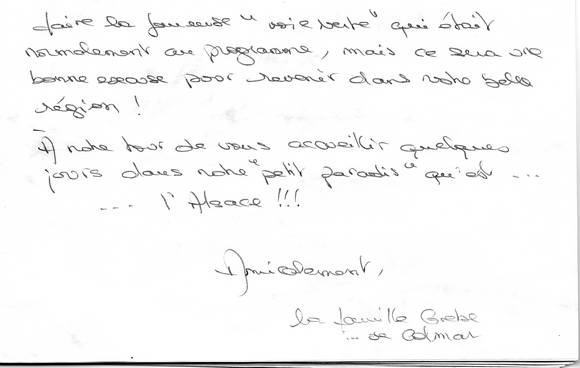 faire la fameuse "voie verte" qui était
normalement au programme, mais ce sera une
bonne excuse pour revenir dans votre belle
région !
A notre tour de vous accueillir quelques
jours dans notre "petit paradis" qu'est ...
... l'Alsace !!!
Amicalement,
la famille Grebe
... de Colmar